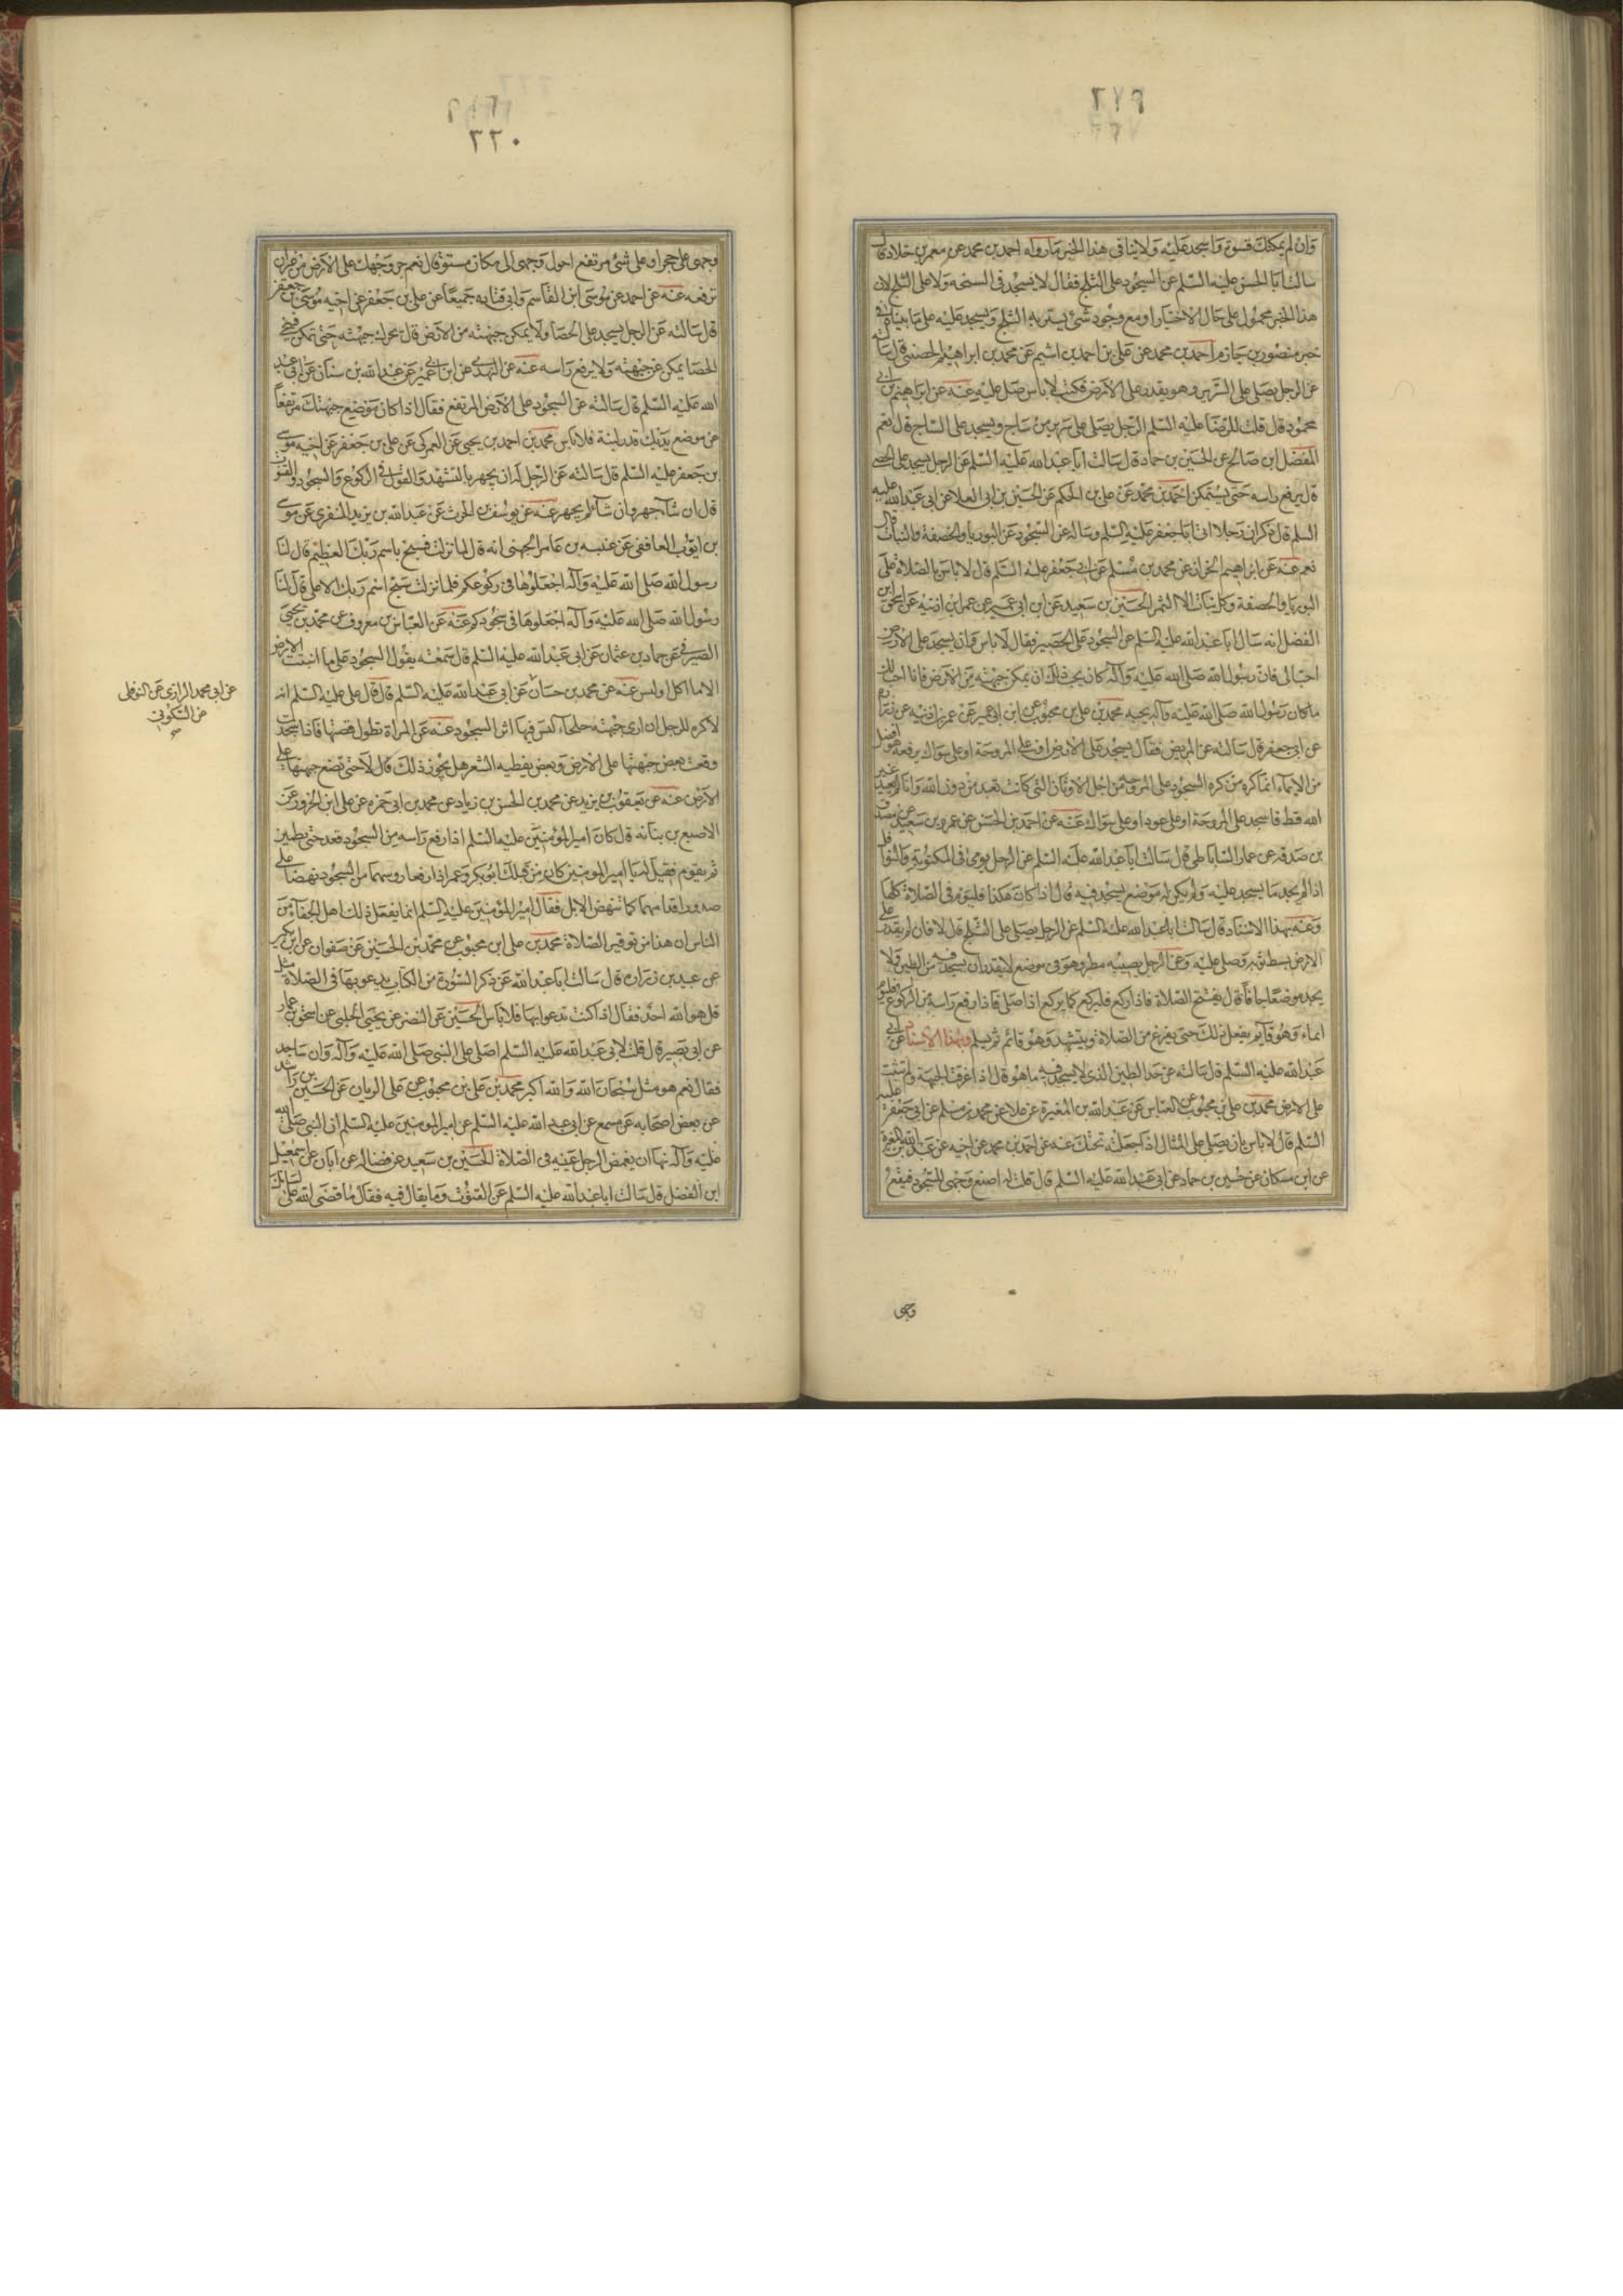 ٢٢٩
وان لم يمكنك فسوه واسجد عليه ولا ينافي هذا الخبر ما رواه احمد بن محمد عن معمر بن خلاد قال
سالت ابا الحسن عليه السلم عن السجود على الثلج فقال لا يسجد في السبخة ولا على الثلج لان
هذا الخبر محمول على حال الاختيار او مع وجود شئ يستر به الثلج ويسجد عليه على ما بيناه في
خبر منصور بن حازم احمد بن محمد عن علي بن احمد بن اشيم عن محمد بن ابراهيم الحصيني قال سالته
عن الرجل يصلي على السرير وهو يقدر على الارض فكتب لا باس صل عليه عنه عن ابراهيم بن ابي
محمود قال قلت للرضا عليه السلم الرجل يصلي على سرير من ساج ويسجد على الساج قال نعم
المفضل ابن صالح عن الحسين بن حماد قال سالت ابا عبد الله عليه السلم عن الرجل يسجد على الحصى
قال يرفع راسه حتى يستمكن احمد بن محمد عن علي بن الحكم عن الحسين بن ابي العلا عن ابي عبد الله عليه
السلم قال ذكر ان رجلا اتى ابا جعفر عليه السلم وساله عن السجود على البوريا والخصفة والنبات قال
نعم عنه عن ابراهيم الخزاز عن محمد بن مسلم عن ابي جعفر عليه السلم قال لا باس بالصلاة على
البوريا والخصفة وكل نبات الا الثمر الحسين بن سعيد عن ابن ابي عمير عن عمر ابن اذينة عن اسحق ابن
الفضل انه سال ابا عبد الله عليه السلم عن السجود على الحصير فقال لا باس وان يسجد على الارض
احب الي فان رسول الله صلى الله عليه وآله كان يحب ذلك ان يمكن جبهته من الارض فانا احب لك
ما كان رسول الله صلى الله عليه وآله يحبه محمد بن علي بن محبوب عن ابن ابي عمير عن عمر بن اذينة عن زرارة
عن ابي جعفر قال سالته عن المريض فقال يسجد على الارض او على المروحة او على سواك يرفعه هو افضل
من الايماء انما كره من كره السجود على المروحة من اجل الاوثان التي كانت تعبد من دون الله وانا لم نعبد غير
الله قط فاسجد على المروحة او على عود او على سواك عنه عن احمد بن الحسن عن عمرو بن سعيد عن مصدق
بن صدقة عن عمار الساباطي قال سالت ابا عبد الله عليه السلم عن الرجل يومئ في المكتوبة والنوافل
اذا لم يجد ما يسجد عليه ولم يكن له موضع يسجد فيه قال اذا كان هكذا فليوم في الصلاة كلها
وعنه بهذا الاسناد قال سالت ابا عبد الله عليه السلم عن الرجل يصلي على الثلج قال لا فان لم يقدر على
الارض بسط ثوبه وصلى عليه وعن الرجل يصيبه مطر وهو في موضع لا يقدر ان يسجد فيه من الطين ولا
يجد موضعا جافا قال يفتتح الصلاة فاذا ركع فليركع كما يركع اذا صلى فاذا رفع راسه من الركوع فليوم
ايماء وهو قايم يفعل ذلك حتى يفرغ من الصلاة ويتشهد وهو قائم ثم يسلم وبهذا الاسناد عن ابي
عبد الله عليه السلم قال سالته عن حد الطين الذي لا يسجد فيه ما هو قال اذا غرقت الجبهة ولم تثبت
على الارض محمد بن علي بن محبوب عن العباس عن عبد الله بن المغيرة عن علا عن محمد بن مسلم عن ابي جعفر عليه
السلم قال لا باس بان يصلي على المثال اذا جعلته تحتك عنه عن احمد بن محمد عن ابيه عن عبد الله بن المغيرة
عن ابن مسكان عن حسين بن حماد عن ابي عبد الله عليه السلم قال قلت له اضع وجهي للسجود فيقع
وجهى
٢٢٠
وجهى على حجر او على شئ مرتفع احول وجهى الى مكان مستو قال نعم جر وجهك على الارض من غير ان
ترفعه عنه عن احمد عن موسى ابن القاسم وابي قتادة جميعا عن علي بن جعفر عن اخيه موسى بن جعفر
قال سالته عن الرجل يسجد على الحصا ولا يمكن جبهته من الارض قال يحرك جبهته حتى تمكن فينحي
الحصا يمكن عن جبهته ولا يرفع راسه عنه عن النهدي عن ابن ابي عمير عن عبد الله بن سنان عن ابي عبد
الله عليه السلم قال سالته عن السجود على الارض المرتفع فقال اذا كان موضع جبهتك مرتفعا
عن موضع يديك قدر لبنة فلا باس محمد بن احمد بن يحيى عن العمركي عن علي بن جعفر عن اخيه موسى
بن جعفر عليه السلم قال سالته عن الرجل له ان يجهر بالتشهد والقول في الركوع والسجود والقنوت
قال ان شآء جهر وان شآء لم يجهر عنه عن يوسف بن الحرث عن عبد الله بن يزيد المنقري عن موسى
بن ايوب الغافقي عن عنبسه بن عامر الجهني انه قال لما نزلت فسبح باسم ربك العظيم قال لنا
رسول الله صلى الله عليه وآله اجعلوها في ركوعكم فلما نزلت سبح اسم ربك الاعلى قال لنا
رسول الله صلى الله عليه وآله اجعلوها في سجودكم عنه عن العباس بن معروف عن محمد بن يحيى
الصيرفي عن حماد بن عثمان عن ابي عبد الله عليه السلم قال سمعته يقول السجود على ما انبتت الارض
الا ما اكل او لبس عنه عن محمد بن حسان عن ابي عبد الله عليه السلم قال قال علي عليه السلم انه
لاكره للرجل ان ارى جبهته جلحاء ليس فيها اثر السجود عنه عن المراة تطول قصتها فاذا سجدت
وقعت بعض جبهتها على الارض وبعض يغطيه الشعر هل يجوز ذلك قال لا حتى تضع جبهتها على
الارض عنه عن يعقوب بن يزيد عن محمد بن الحسن بن زياد عن محمد بن ابي حمزه عن علي ابن الحزور عن
الاصبغ بن نباته قال كان امير المؤمنين عليه السلم اذا رفع راسه من السجود قعد حتى يطمئن
ثم يقوم فقيل له يا امير المومنين كان من قبلك ابو بكر وعمر اذا رفعا روسهما من السجود نهضا على
صدور اقدامهما كما تنهض الابل فقال امير المؤمنين عليه السلم انما يفعل ذلك اهل الجفآء من
الناس ان هذا من توقير الصلاة محمد بن علي ابن محبوب عن محمد بن الحسين عن صفوان عن ابن بكير
عن عبيد بن زرارة قال سالت ابا عبد الله عن ذكر السورة من الكتاب يدعو بها في الصلاة مثل
قل هو الله احد فقال اذا كنت تدعو بها فلا باس الحسين عن النضر عن يحيى الحلبي عن اسحق بن عمار
عن ابي بصير قال قلت لابي عبد الله عليه السلم اصلي على النبي صلى الله عليه وآله وان ساجد
فقال نعم هو مثل سبحان الله والله اكبر محمد بن علي بن محبوب عن علي الريان عن الحسين بن راشد
عن بعض اصحابه عن مسمع عن ابي عبد الله عليه السلم عن امير المومنين عليه السلم ان النبي صلى الله
عليه وآله نها ان يغمض الرجل عينيه في الصلاة الحسين بن سعيد عن فضاله عن ابان عن اسمعيل
ابن الفضل قال سالت ابا عبد الله عليه السلم عن القنوت وما يقال فيه فقال ما قضى الله على لسانك
عن ابى محمد الرازي عن النوفلى
عن السكونى